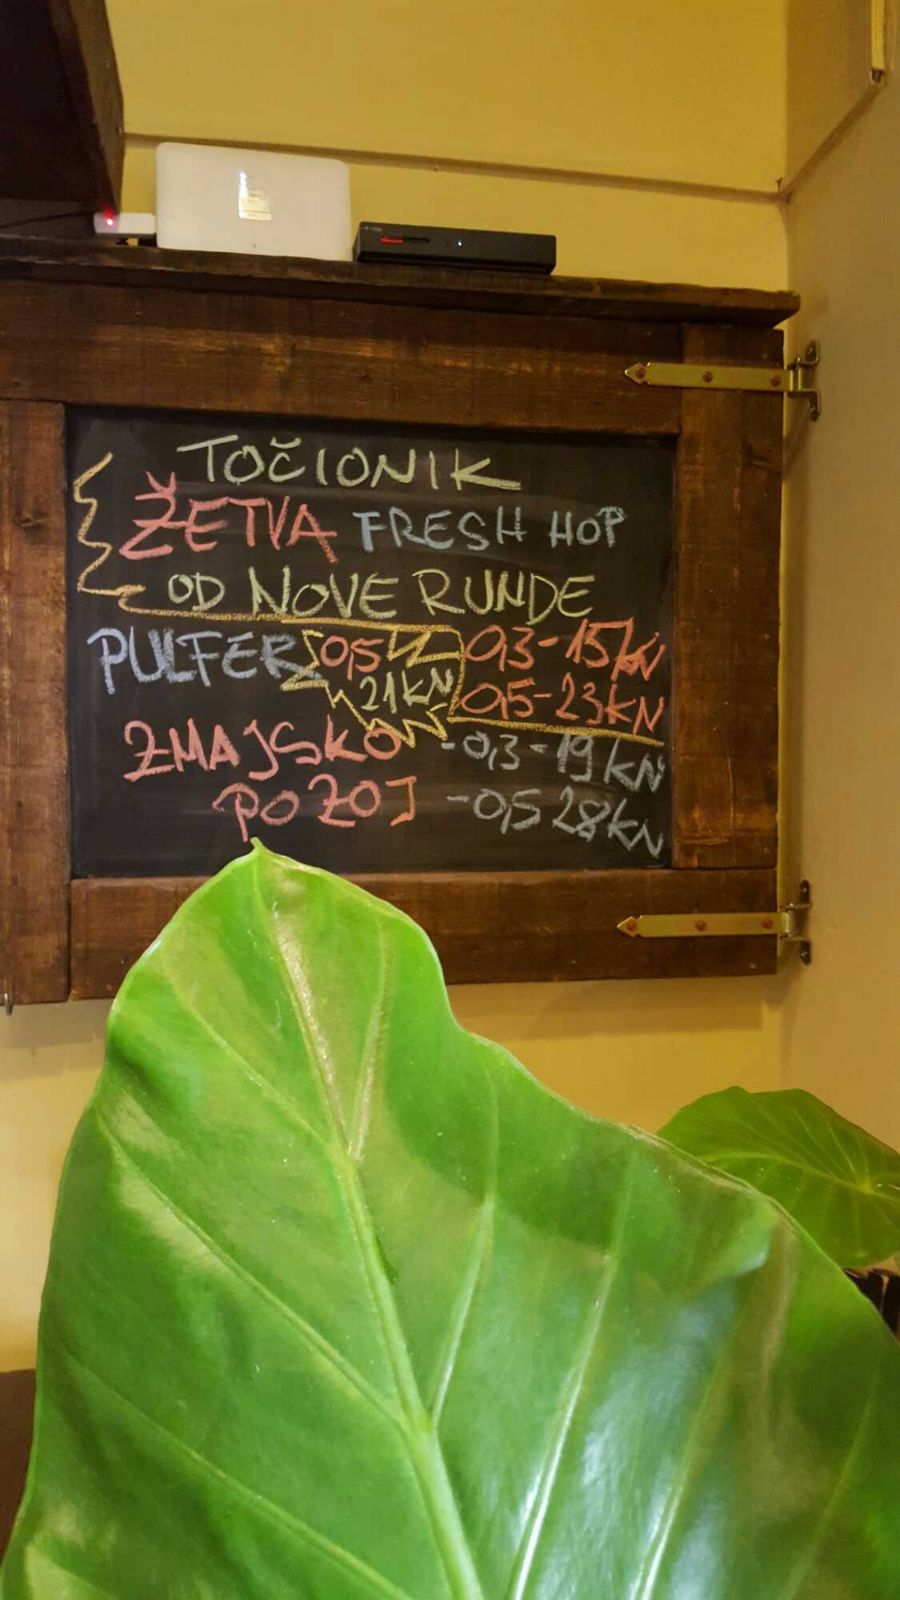 TOČIONIK
ŽETVA FRESH HOP
OD NOVE RUNDE
PULFER 0,5 21KN
0,3-15KN
0,5-23KN
ZMAJSKO POZOJ
-0,3-19KN
-0,5 28KN